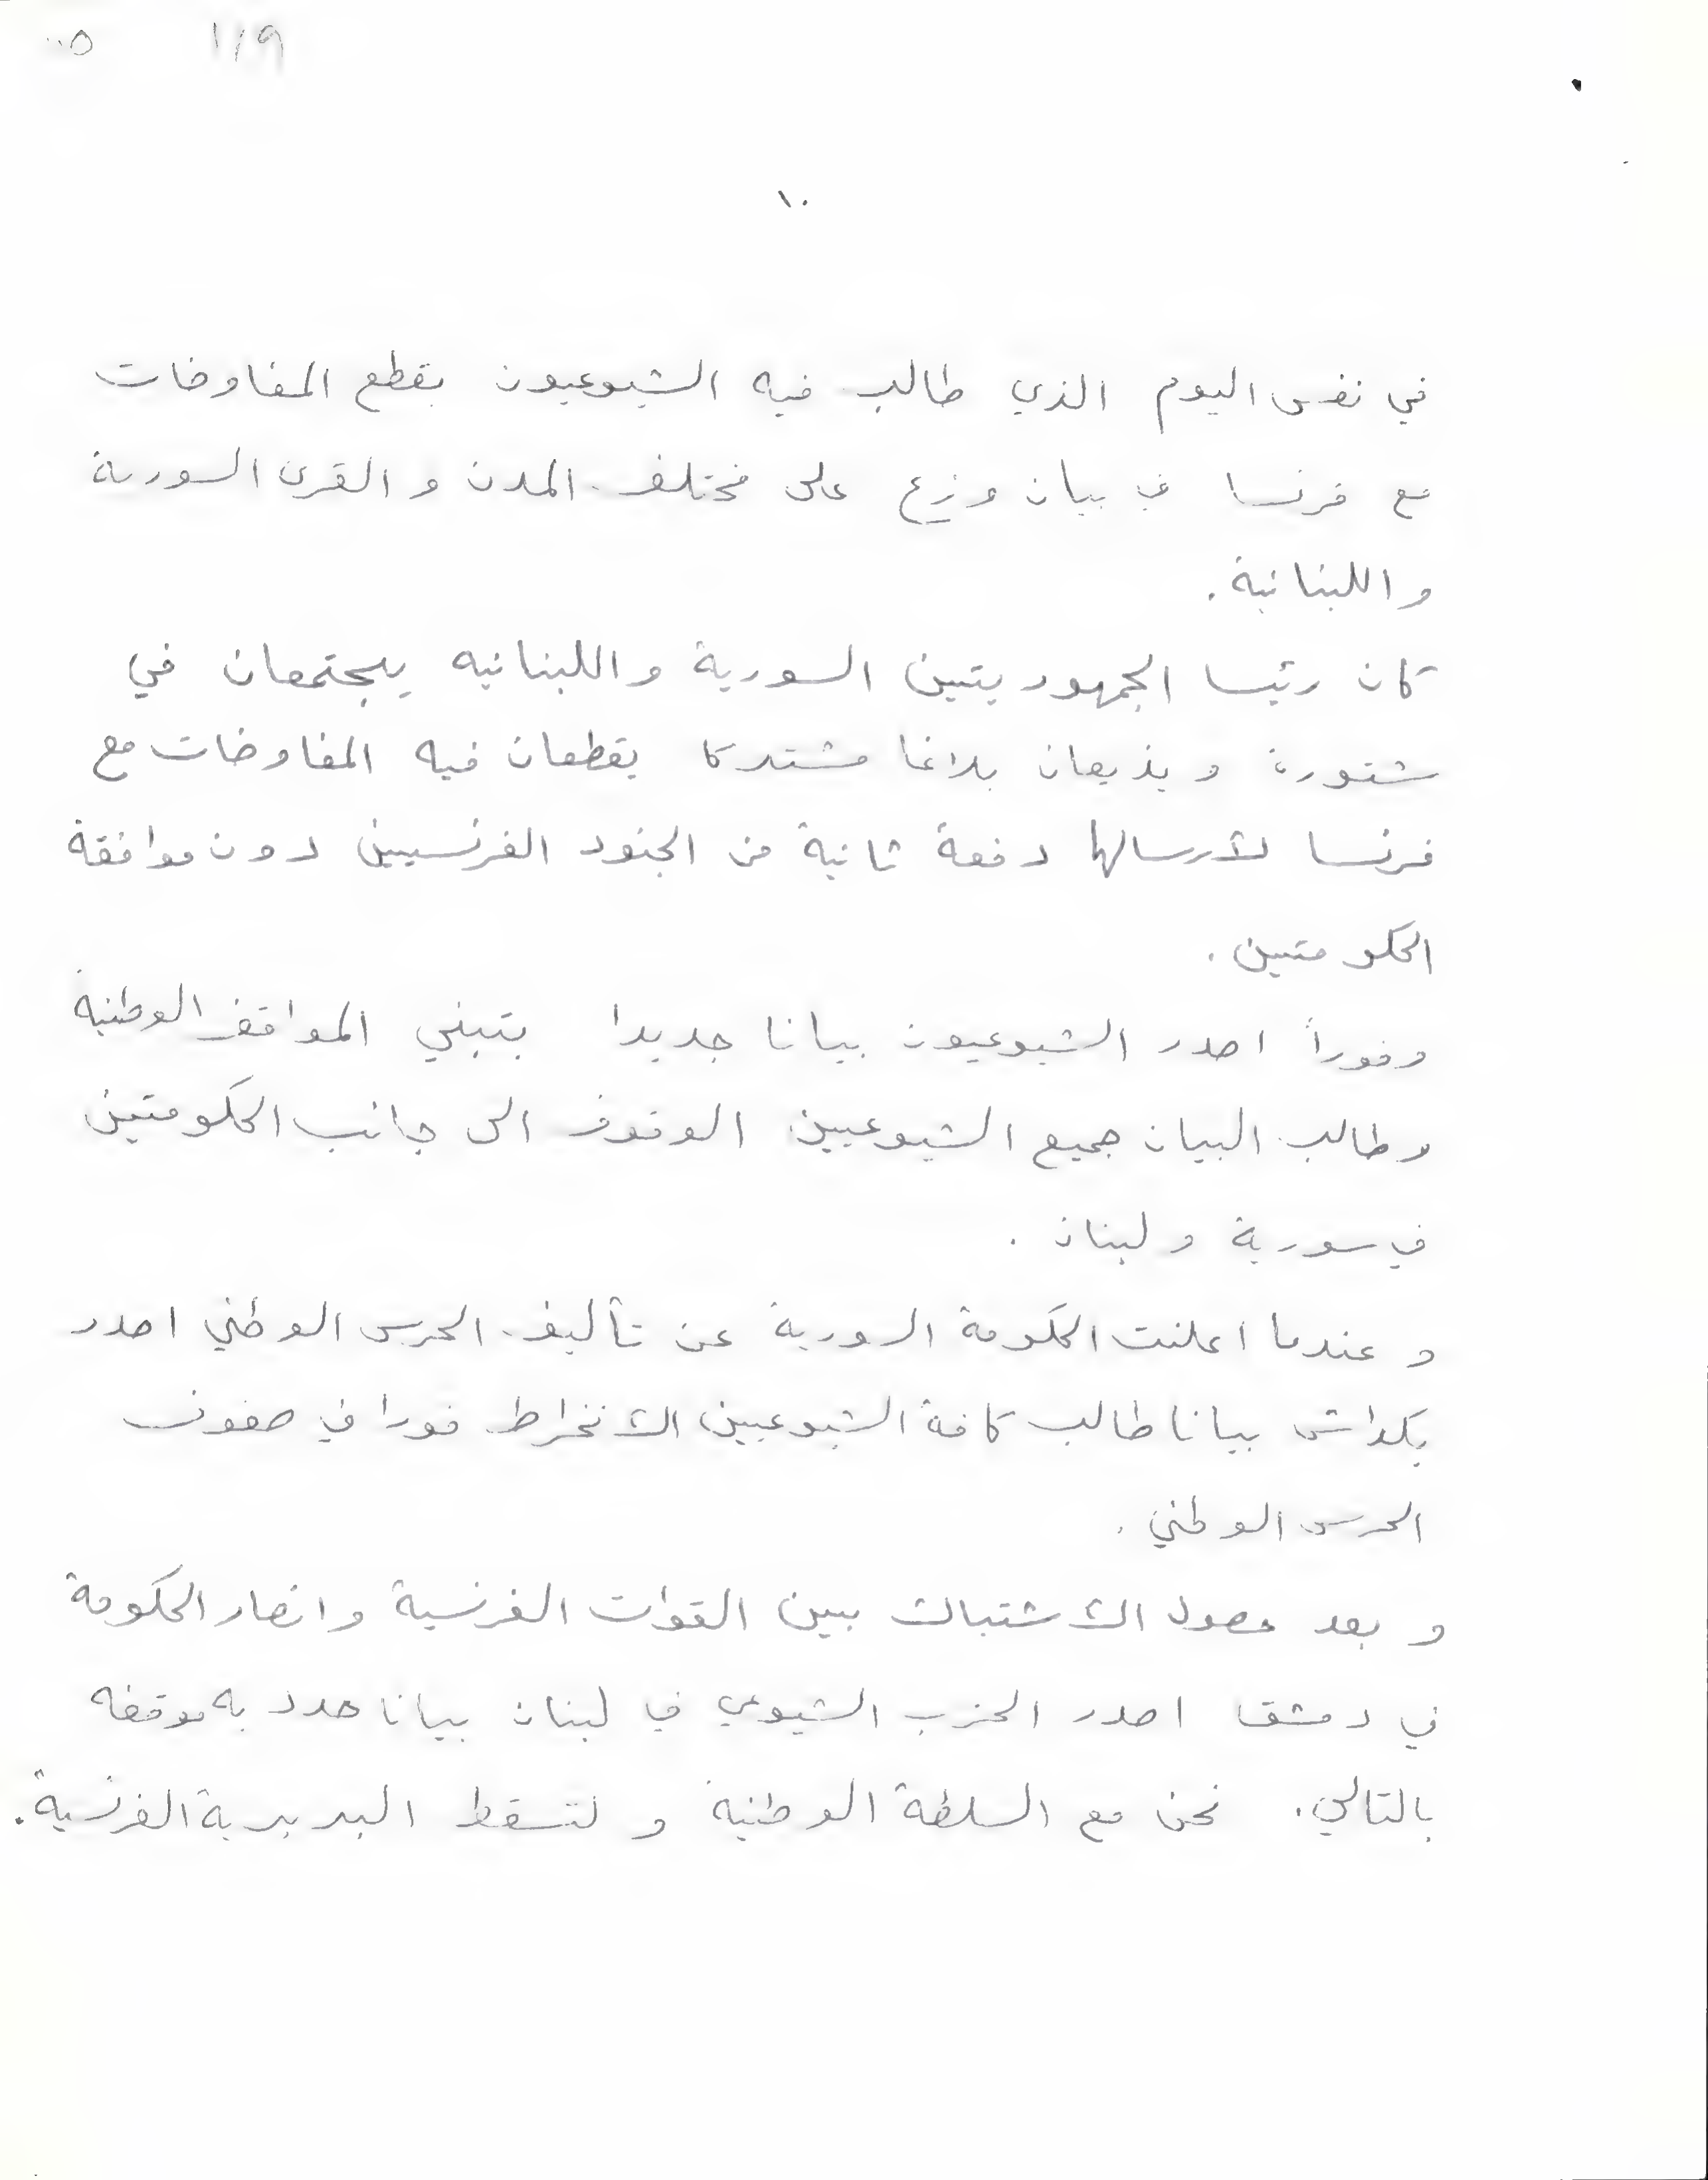 ١١٩ ٥٠٠
١٠
في نفس اليوم الذي طالب فيه الشيوعيون بقطع المفاوضات
مع فرنسا في بيان وزع على مختلف المدن والقرى السورية
واللبنانية.
كان رئيسا الجمهوريتين السورية واللبنانيه يجتمعان في
شتورة ويذيعان بلاغا مشتركا يقطعان فيه المفاوضات مع
فرنسا لارسالها دفعة ثانية من الجنود الفرنسيين دون موافقة
الحكومتين.
وفوراً اصدر الشيوعيون بيانا جديدا بتبني المواقف الوطنية
وطالب البيان جميع الشيوعيين الوقوف الى جانب الحكومتين
في سورية ولبنان.
وعندما اعلنت الحكومة السورية عن تأليف الحرس الوطني اصدر
بكداش بيانا طالب كافة الشيوعيين الانخراط فورا في صفوف
الحرس الوطني.
وبعد حصول الاشتباك بين القوات الفرنسية وانصار الحكومة
في دمشق اصدر الحزب الشيوعي في لبنان بيانا حدد به موقفه
بالتالي. نحن مع السلطة الوطنية ولتسقط البربرية الفرنسية.